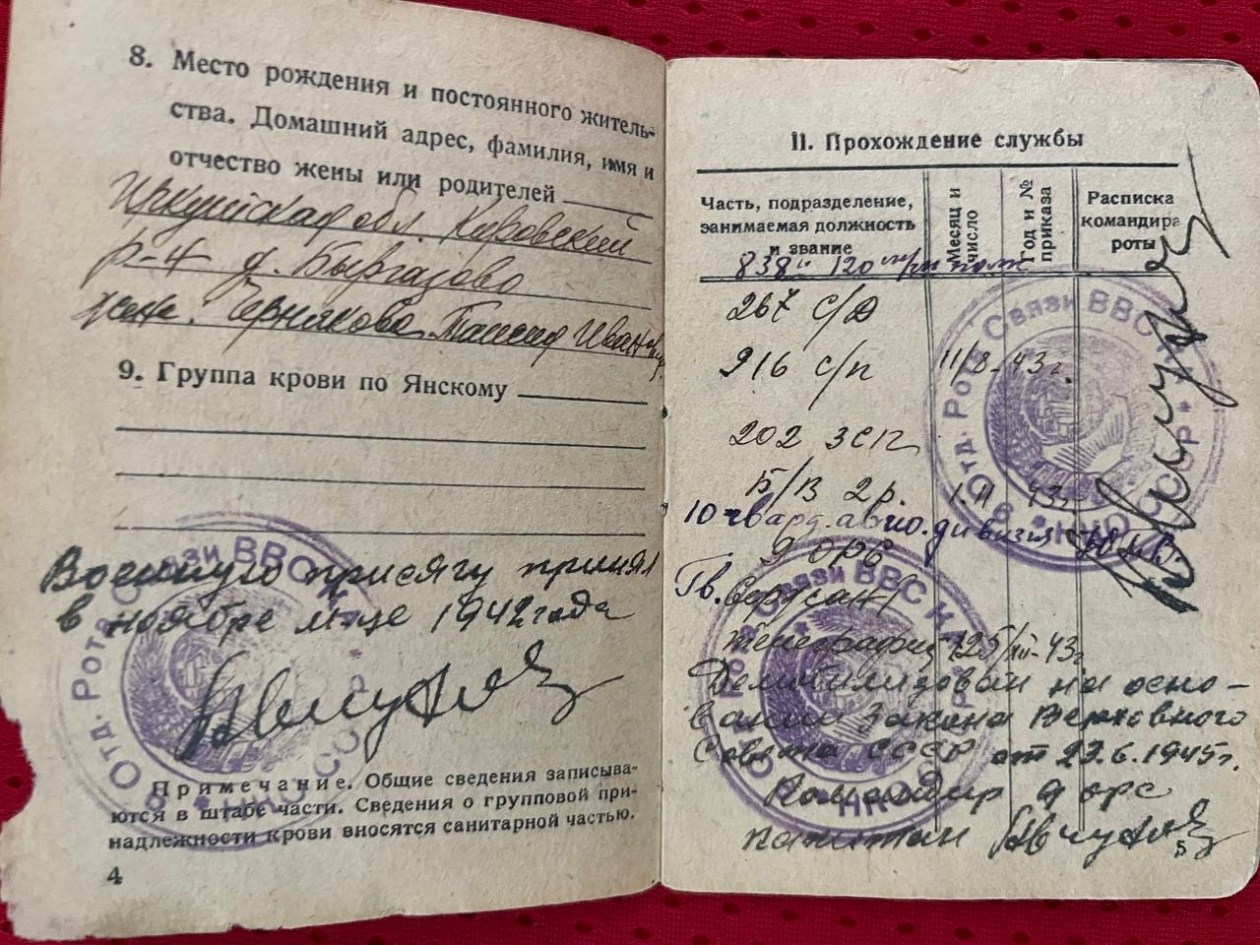 8. Место рождения и постоянного житель-
ства. Домашний адрес, фамилия, имя и
отчество жены или родителей
Иркутская обл. Кировский
р-н д. Быргазово
жена. Чернякова Таисия Ивановна
9. Группа крови по Янскому
Военную присягу принял
в ноябре м-це 1942 года
Примечание. Общие сведения записыва-
ются в штабе части. Сведения о групповой при-
надлежности крови вносятся санитарной частью.
4
II. Прохождение службы
Часть, подразделение,
занимаемая должность
и звание
Месяц и
число
Год и №
приказа
Расписка
командира
роты
838 120 полк
267 С/Д
916 с/п 11/8-43г.
202 ЗСП
В/В 2р. 1.11 43г
10 гвард. авио. дивизия
9 ОРС
Гв. Сержант
телеграфист 25/XII-43г
Демобилизован на осно-
вании Закона Верховного
Совета СССР от 23.6.1945г.
Командир 9 орс
капитан
5
9 Отд. Рота Связи ВВС КА
НКО СССР
9 Отд. Рота Связи ВВС КА
НКО СССР
9 Отд. Рота Связи ВВС КА
НКО СССР